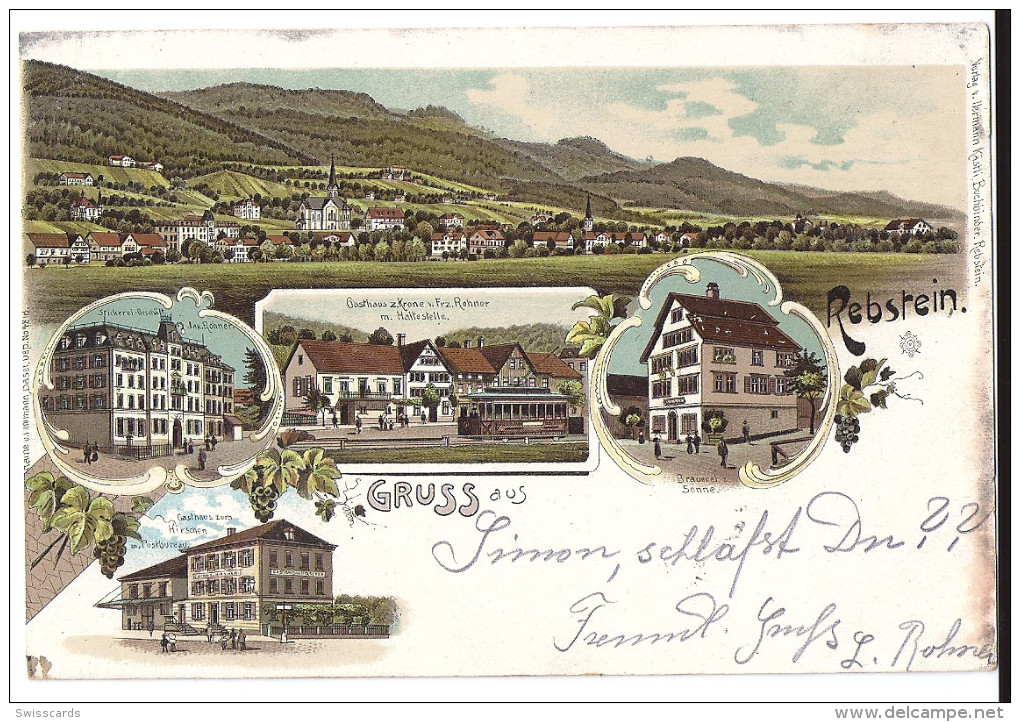 Verlag v. Hermann Kästli, Buchbinder, Rebstein.
Rebstein.
Stickerei-Geschäft
Jos. Rohner
Gasthaus z. Krone v. Frz. Rohner
m. Haltestelle.
Brauerei z.
Sonne.
GRUSS aus
Gasthaus zum
Hirschen
m. Postbureau
Simon, schläfst Du ? ?
Freundl. Gruss
L. Rohner
Swisscards
www.delcampe.net